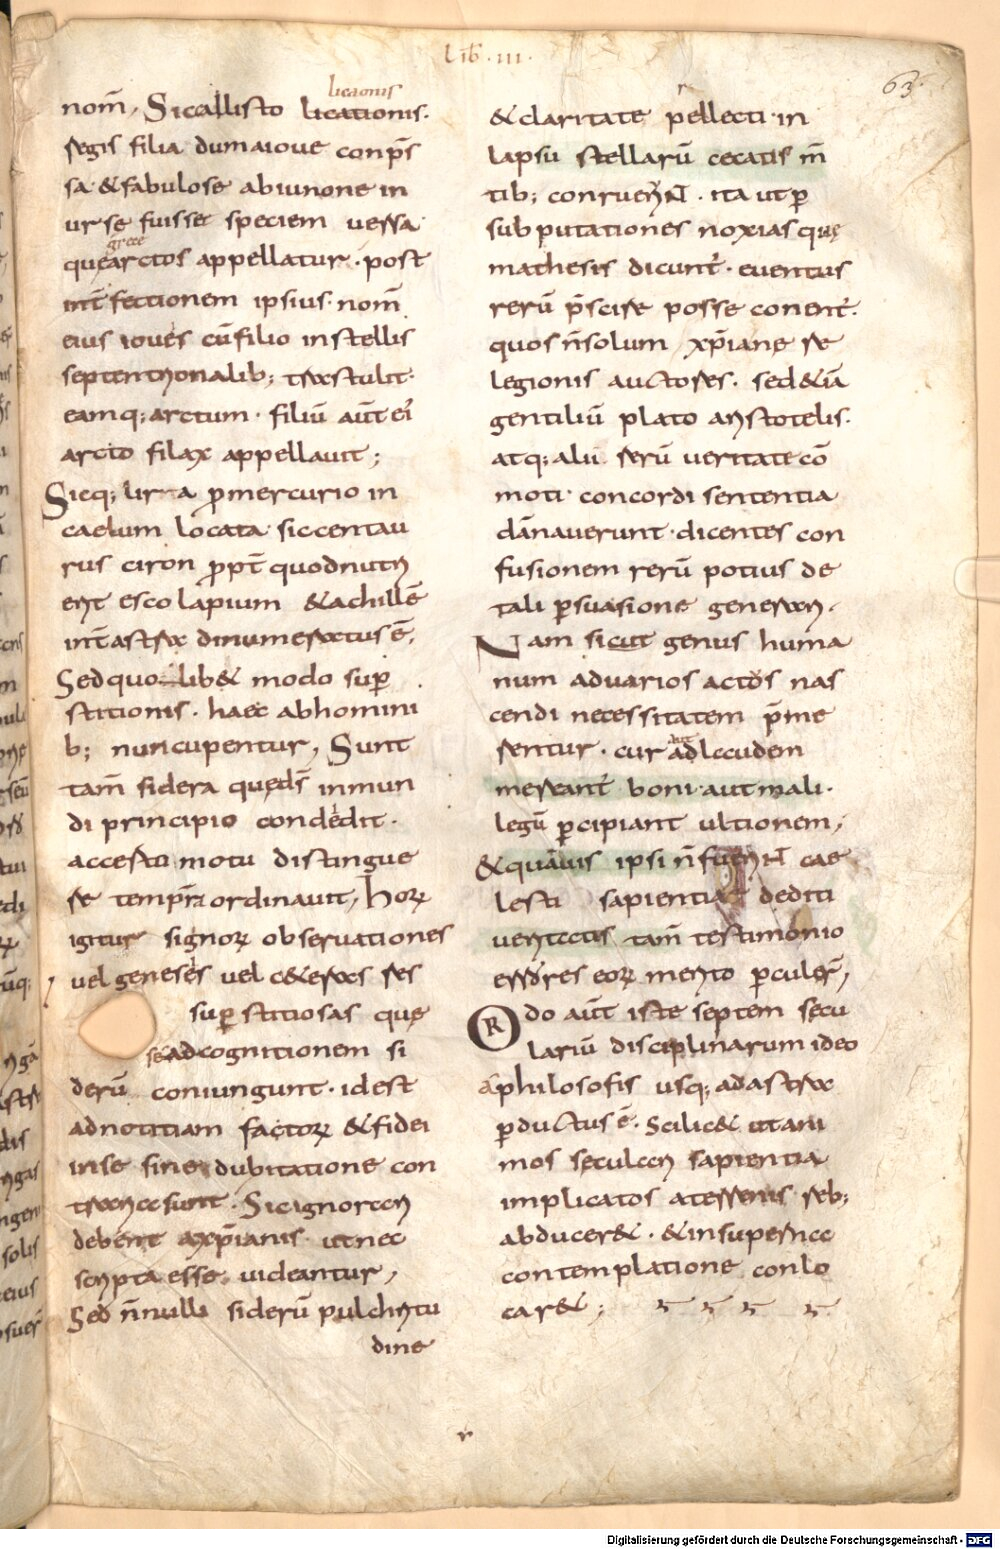 Lib̅ · III ·
63.
licaonis
nom̅, Sicallisto licationis.
regis filia dumaioue conp̅s
sa· &fabulose abiunone in
urse fuisse speciem uersa
grece
quęarctos appellatur · post
int̅fectionem ipsius· nom̅
eius ioues cu̅filio instellis
septentrionalib; transtulit·
eamq; arctum · filiu̅ aut̅ ei
arcto filax appellauit ;
Sicq; lirra p̱mercurio in
caelum locata siccentau
rus ciron p̱pt̅ quodnutri
erit escolapium &achille̅
int̅astra dinumeratus e̅,
Sedquo libet modo sup̱
stitionis · haec abhomini
b; nuncupentur, Sunt
tam̅ sidera quęds̅ inmun
di principio condedit·
accerto motu distingue
re temp̱ra ordinauit, horꝝ
igitur signorꝝ obseruationes
uel geneses uel c&eras res
sup̱stitiosas quę
se adcognitionem si
deru̅ coniungunt· idest
adnotitiam factorꝝ &fidei
inse sine dubitatione con
trariae sunt · Sicignorari
debent axp̅ianis ut nec
scripta esse uideantur,
Sed n̅nulli sideru̅ pulchritu
dine
& claritate p̱llecti· in
lapsu stellaru̅ cecatis m̅
tib; conruerNt · ita ut p̱
subputationes noxias quę
mathesis dicunt̅ · euentus
reru̅ p̅scire posse conent̅·
quos n̅solum xp̅ianę re
legionis auctores · sed&ia̅
gentiliu̅ plato aristotelis·
atq; alii reru̅ ueritate co̅
moti· concordi sententia
da̅nauerunt · dicentes con
fusionem reru̅ potius de
tali p̱suasione generari·
Nam sicut genus huma
num aduarios actos nas
cendi necessitatem p̅me
rentur · cur aut adlaudem
mereant̅ boni· aut mali·
legu̅ p̱cipiant ultionem,
&qua̅uis ipsi n̅fuerNt cae
lesti sapientia dediti
ueritatis tam̅ testimonio
errores eorꝝ merito p̱culer̅,
ORdo aut̅ iste septem secu
lariu̅ disciplinarum ideo
aphilosofis usq; adastra
p̱ductus e̅· Scilic& ut ani
mos seculari sapientia
implicatos aterrenis reb;
abducer& · &insuperna
contemplatione conlo
car& ;